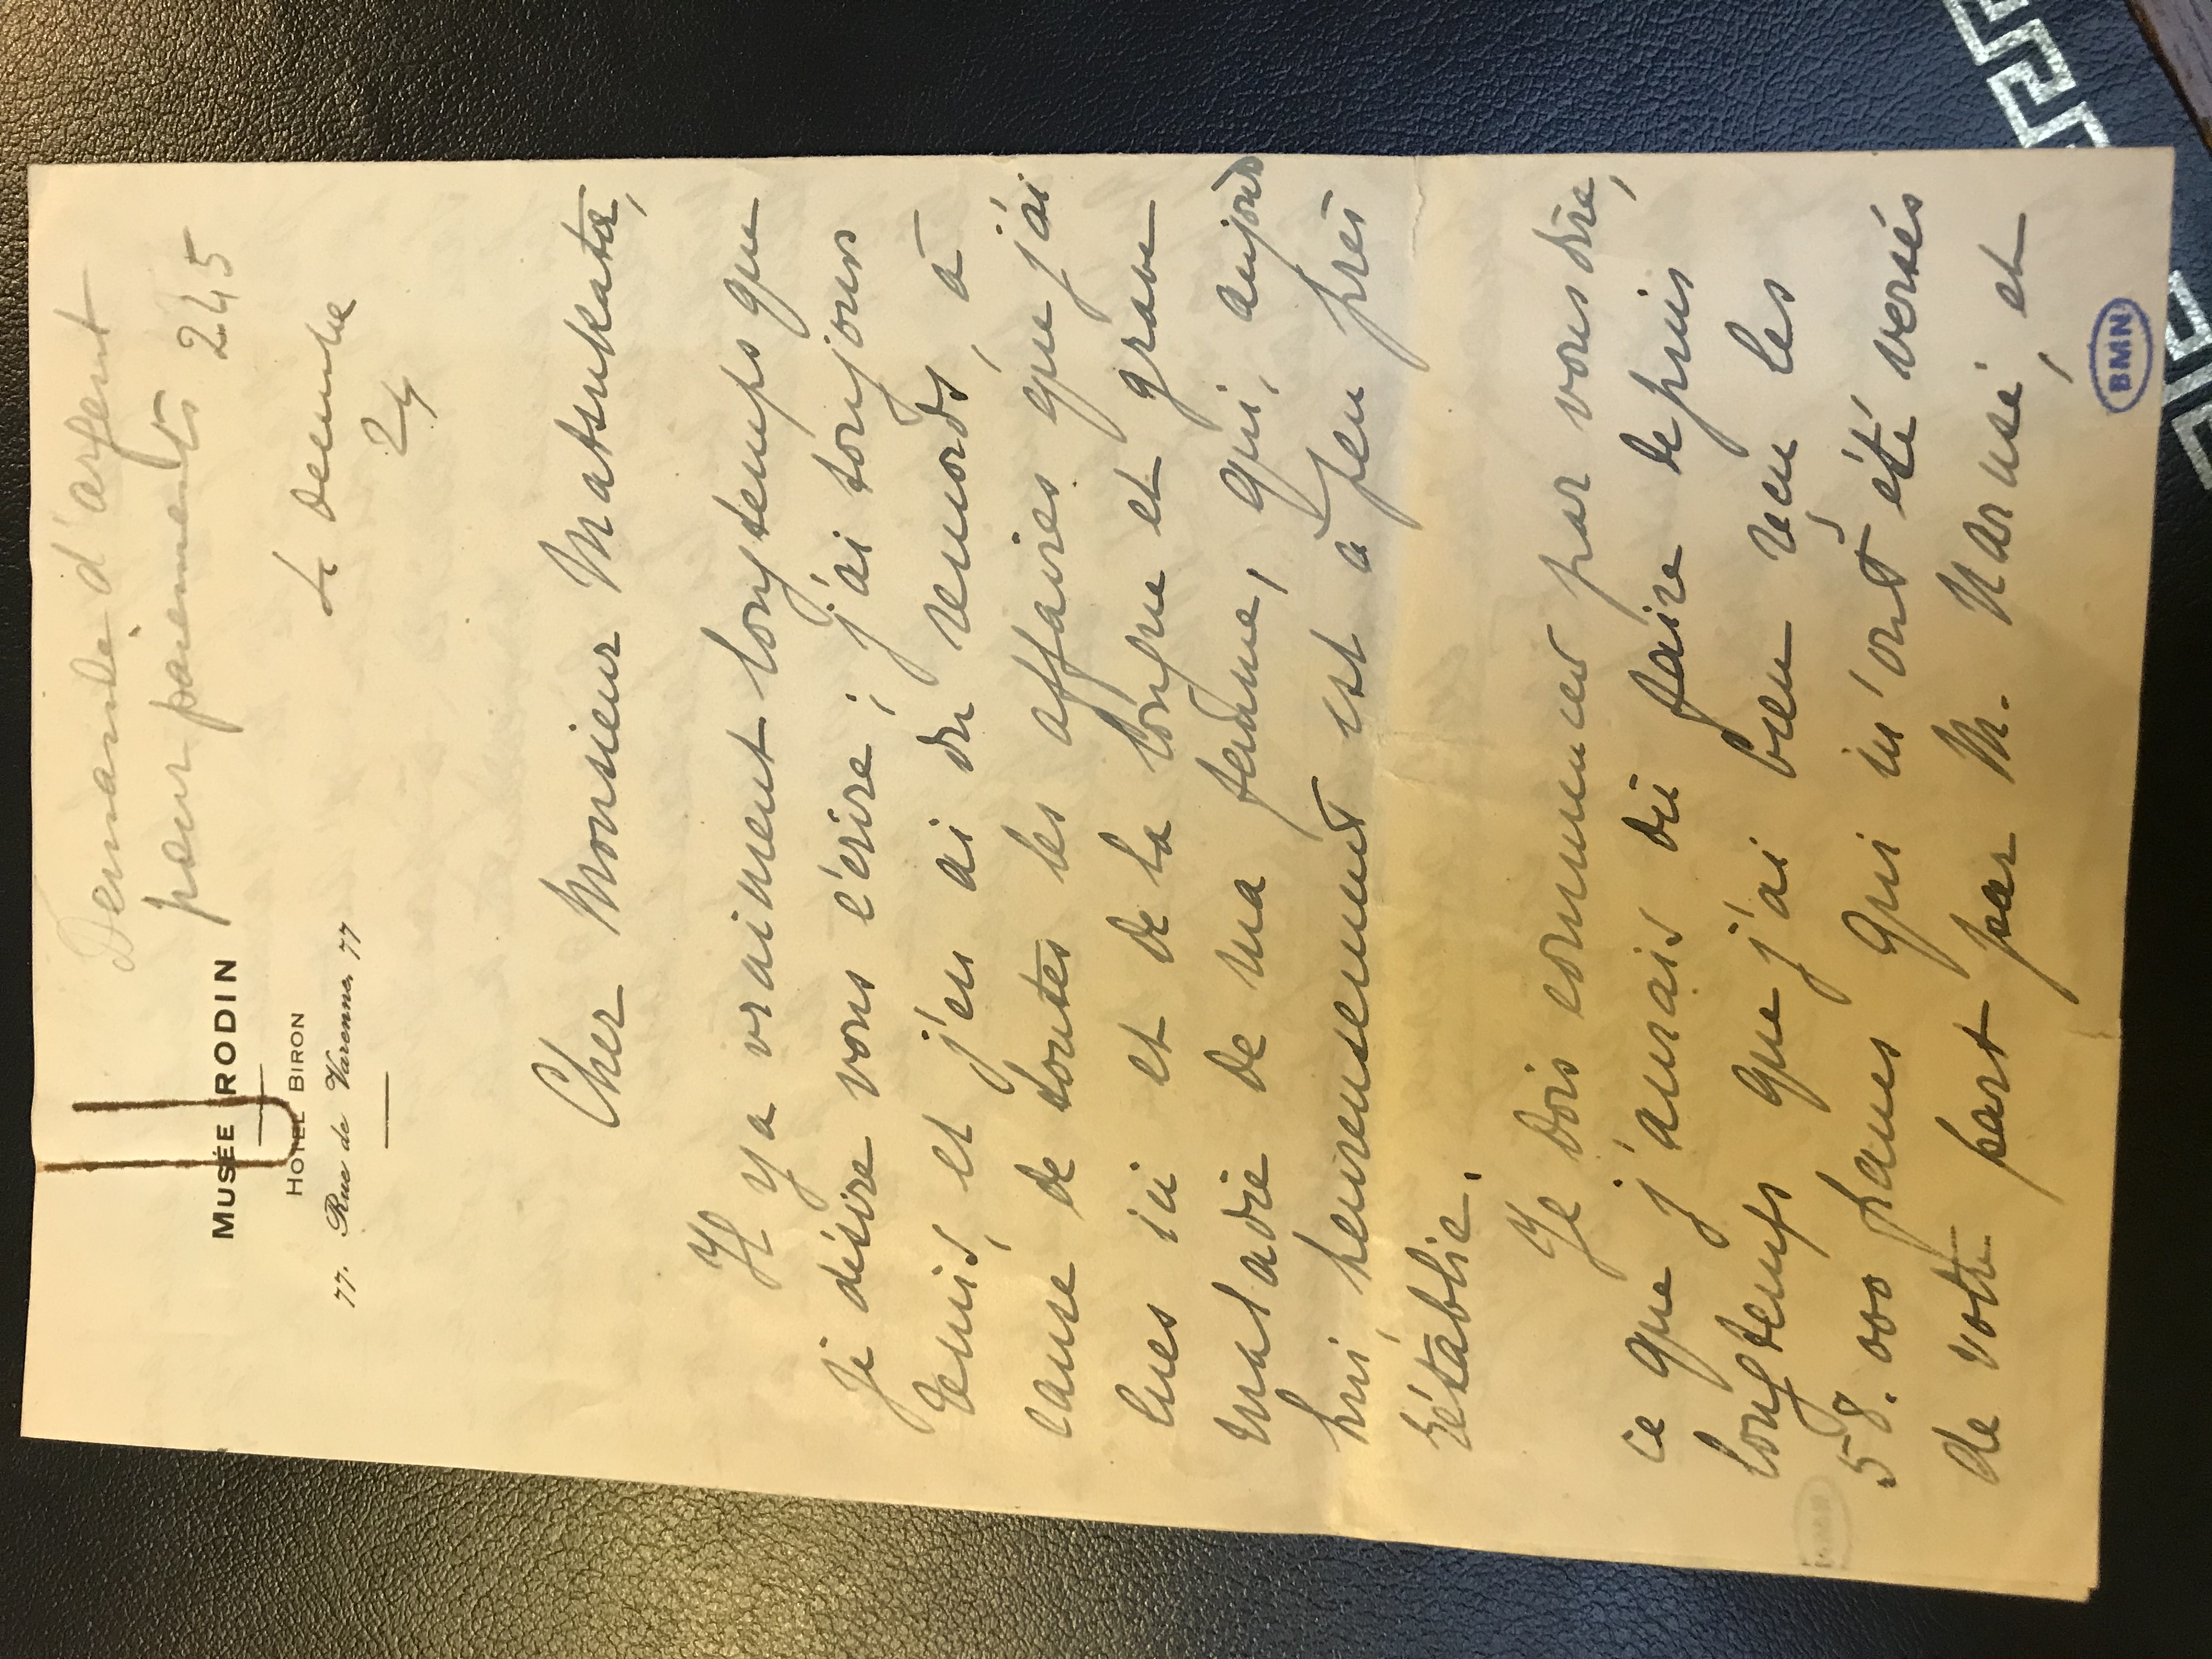 Demande d'argent
pour paiements 245
MUSÉE RODIN
HOTEL BIRON
77, Rue de Varenne, 77
24
Cher Monsieur Matsukata,
Il y a vraiment longtemps que
je désire vous écrire ; j'ai toujours
remis, et j'en ai du remords, à
cause de toutes les affaires que j'ai
eues ici et de la longue et grave
maladie de ma femme, qui, aujourd
hui heureusement est à peu près
rétablie.
Je dois commencer par vous dire,
ce que j'aurais dû faire depuis
longtemps que j'ai bien reçu les
58.000 francs qui m'ont été versés
de votre part par M. Naruse, et
BMN
BMN